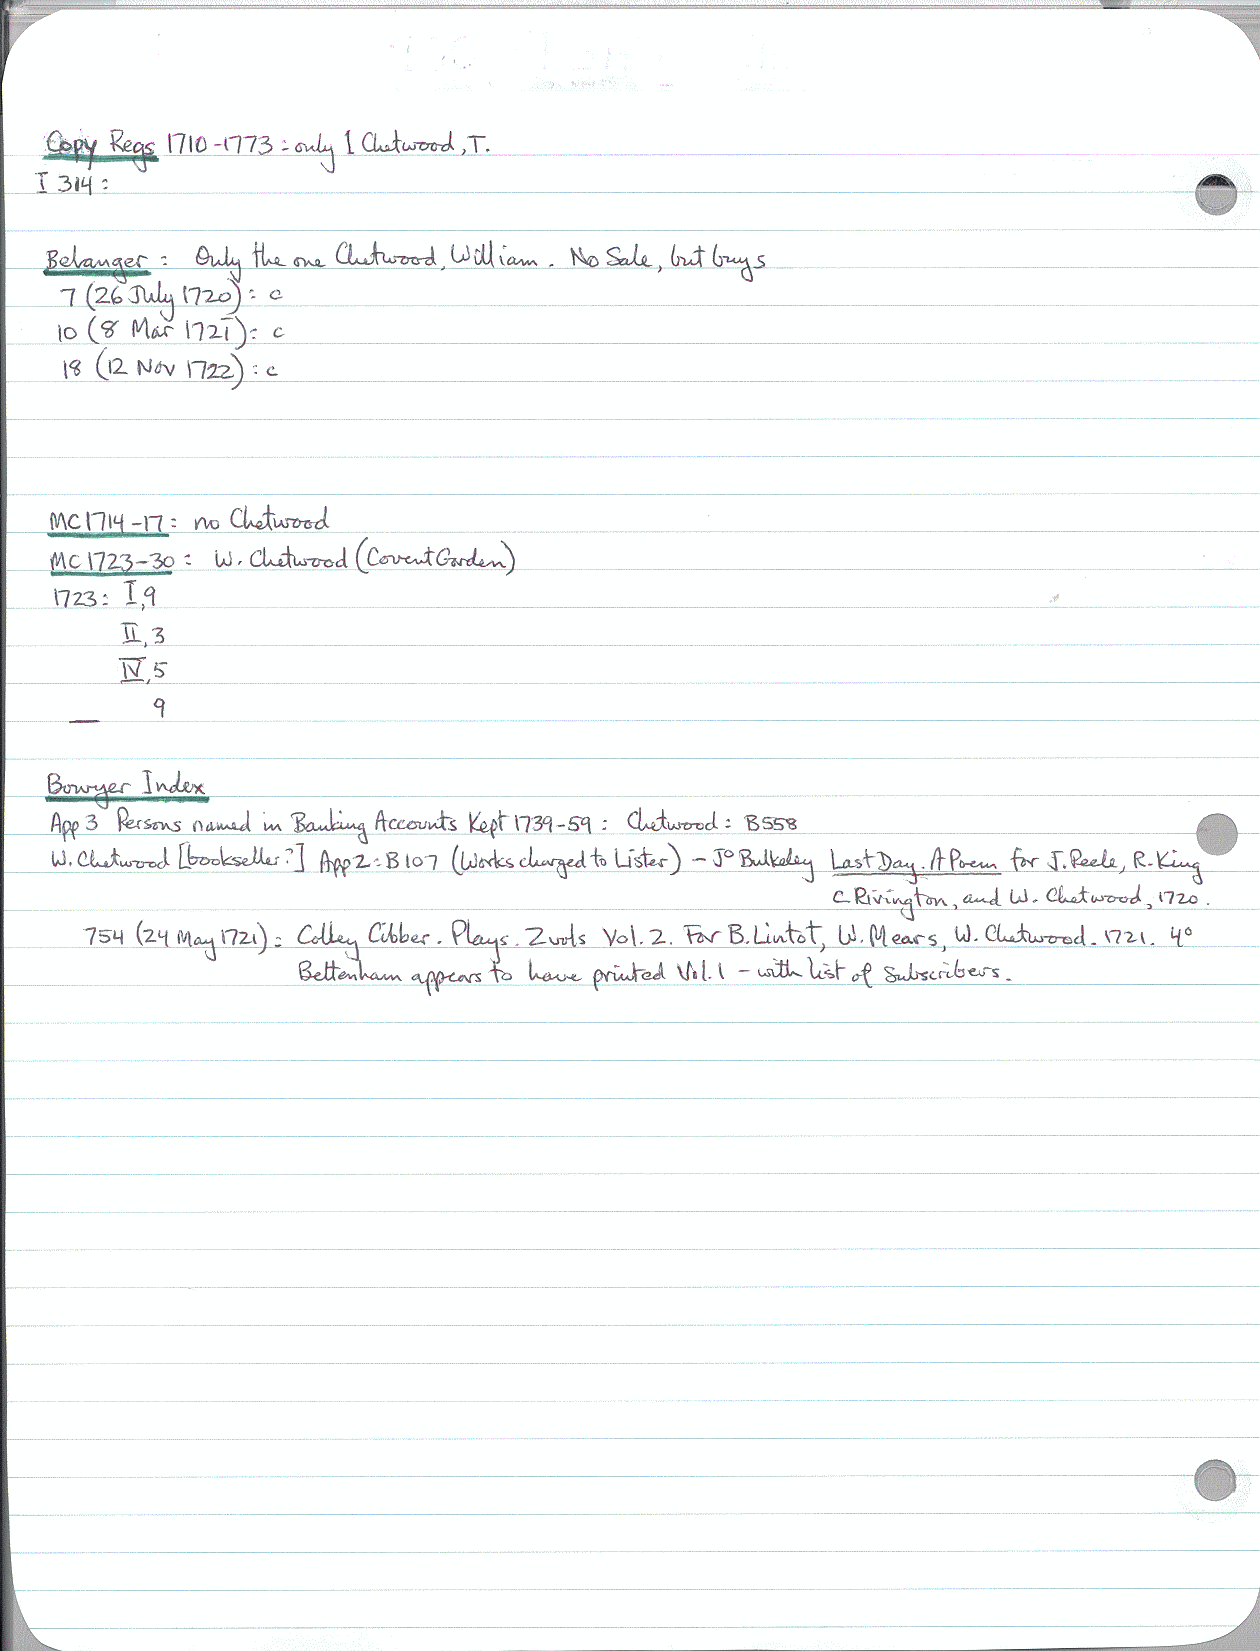 Copy Regs 1710-1773: only 1 Chetwood, T.
I 314:
Belanger: Only the one Chetwood, William. No Sale, but buys
7 (26 July 1720): c
10 (8 Mar 1721): c
18 (12 Nov 1722): c
MC 1714-17: no Chetwood
MC 1723-30: W. Chetwood (Covent Garden)
1723: I, 9
II, 3
IV, 5
9
Bowyer Index
App 3 Persons named in Banking Accounts Kept 1739-59: Chetwood: B558
W. Chetwood [bookseller?] App 2: B107 (Works charged to Lister) - Jo Bulkeley Last Day. A Poem for J. Peele, R. King
C Rivington, and W. Chetwood, 1720.
754 (24 May 1721): Colley Cibber. Plays. 2 vols Vol. 2. For B. Lintot, W. Mears, W. Chetwood. 1721. 4o
Bettenham appears to have printed Vol. 1 - with list of Subscribers.